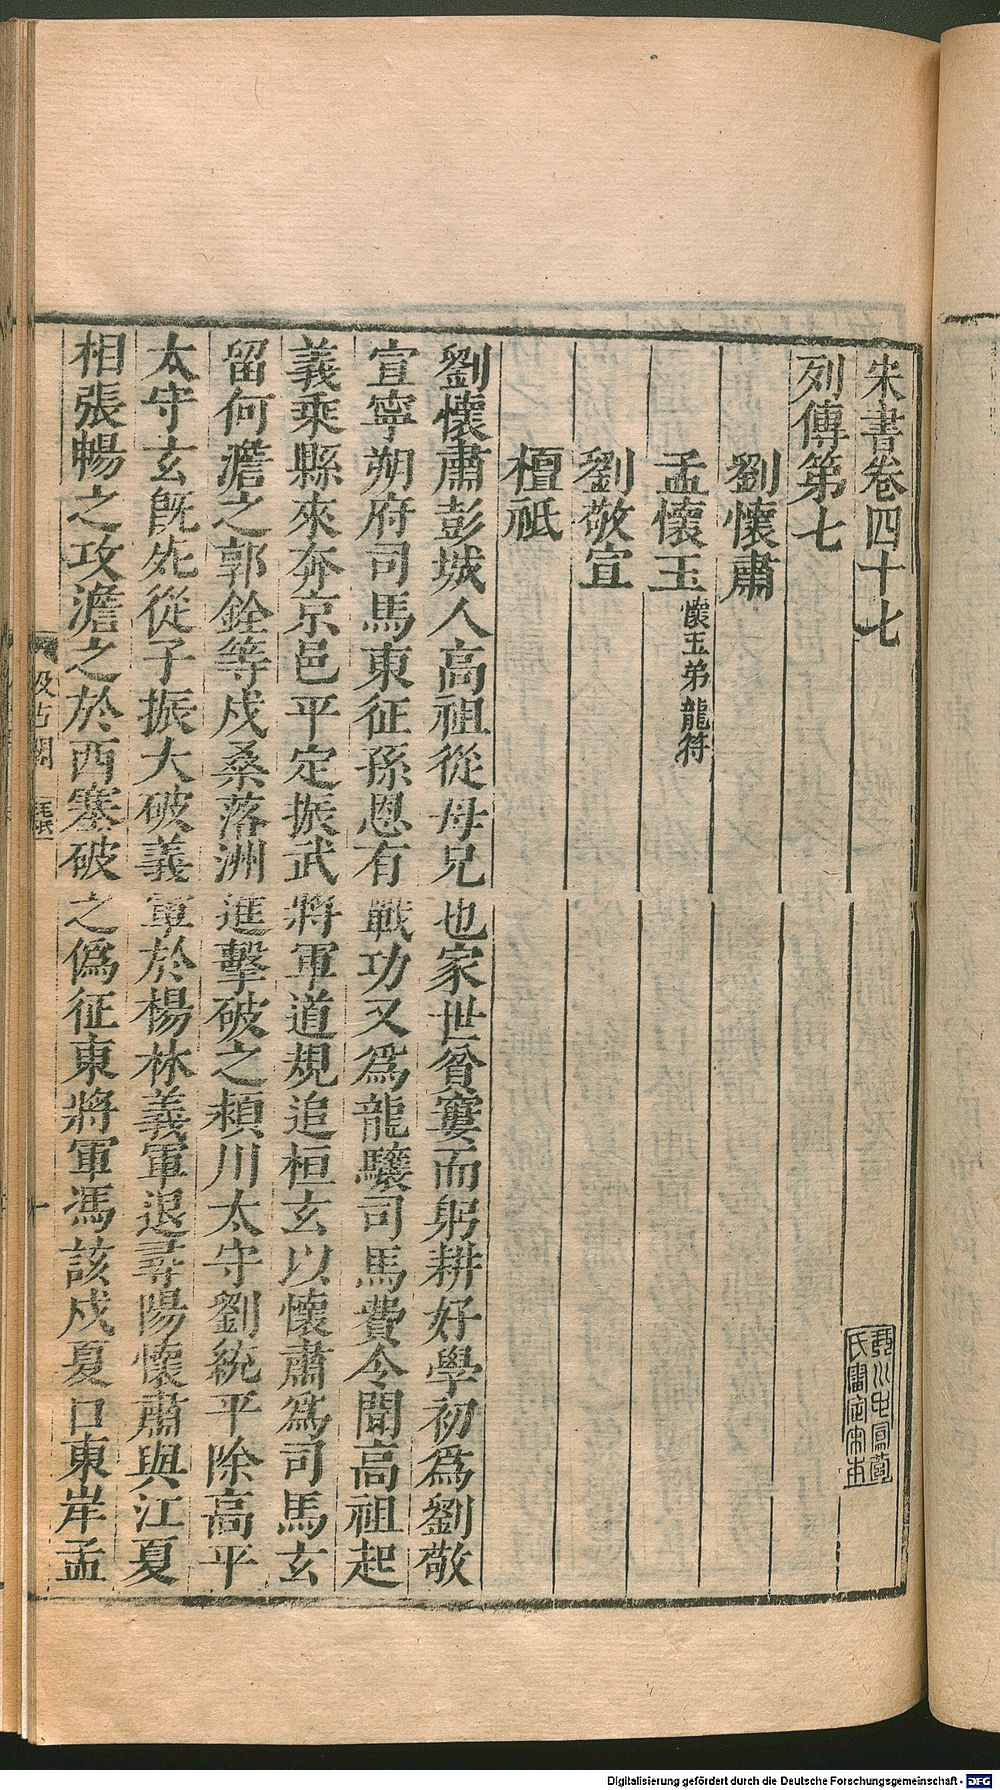 宋書卷四十七
列傳第七
劉懷肅
孟懷玉 懷玉弟龍符
劉敬宣
檀祗
劉懷肅彭城人高祖從母兄也家世貧窶而躬耕好學初為劉敬
宣寧朔府司馬東征孫恩有戰功又為龍驤司馬費令聞高祖起
義乘縣來奔京邑平定振武將軍道規追桓玄以懷肅為司馬玄
留何澹之郭銓等戍桑落洲進擊破之潁川太守劉統平除高平
太守玄旣死從子振大破義軍於楊林義軍退尋陽懷肅與江夏
相張暢之攻澹之於西塞破之偽征東將軍馮該戍夏口東岸孟
汲古閣
Digitalisierung gefördert durch die Deutsche Forschungsgemeinschaft - DFG